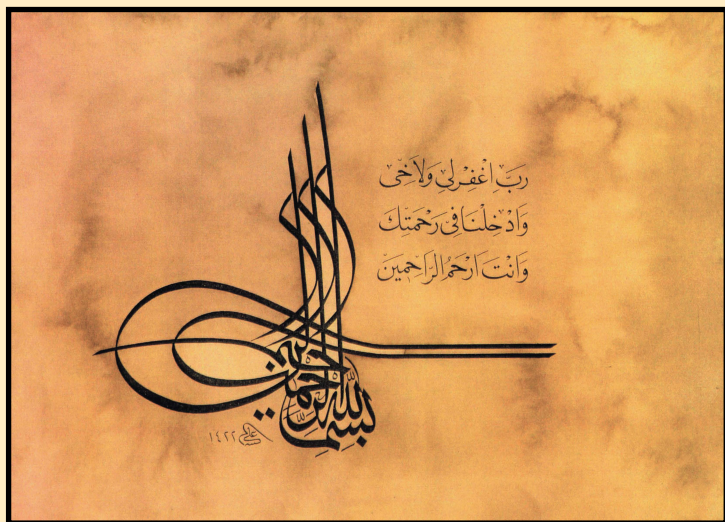 رَبِّ اغْفِرْلِي وَلِاَخِي
وَاَدْخِلْنَا فِي رَحْمَتِكَ
وَاَنْتَ اَرْحَمُ الرَّاحِمِينَ
بسم الله الرحمن الرحيم
١٤٢٢